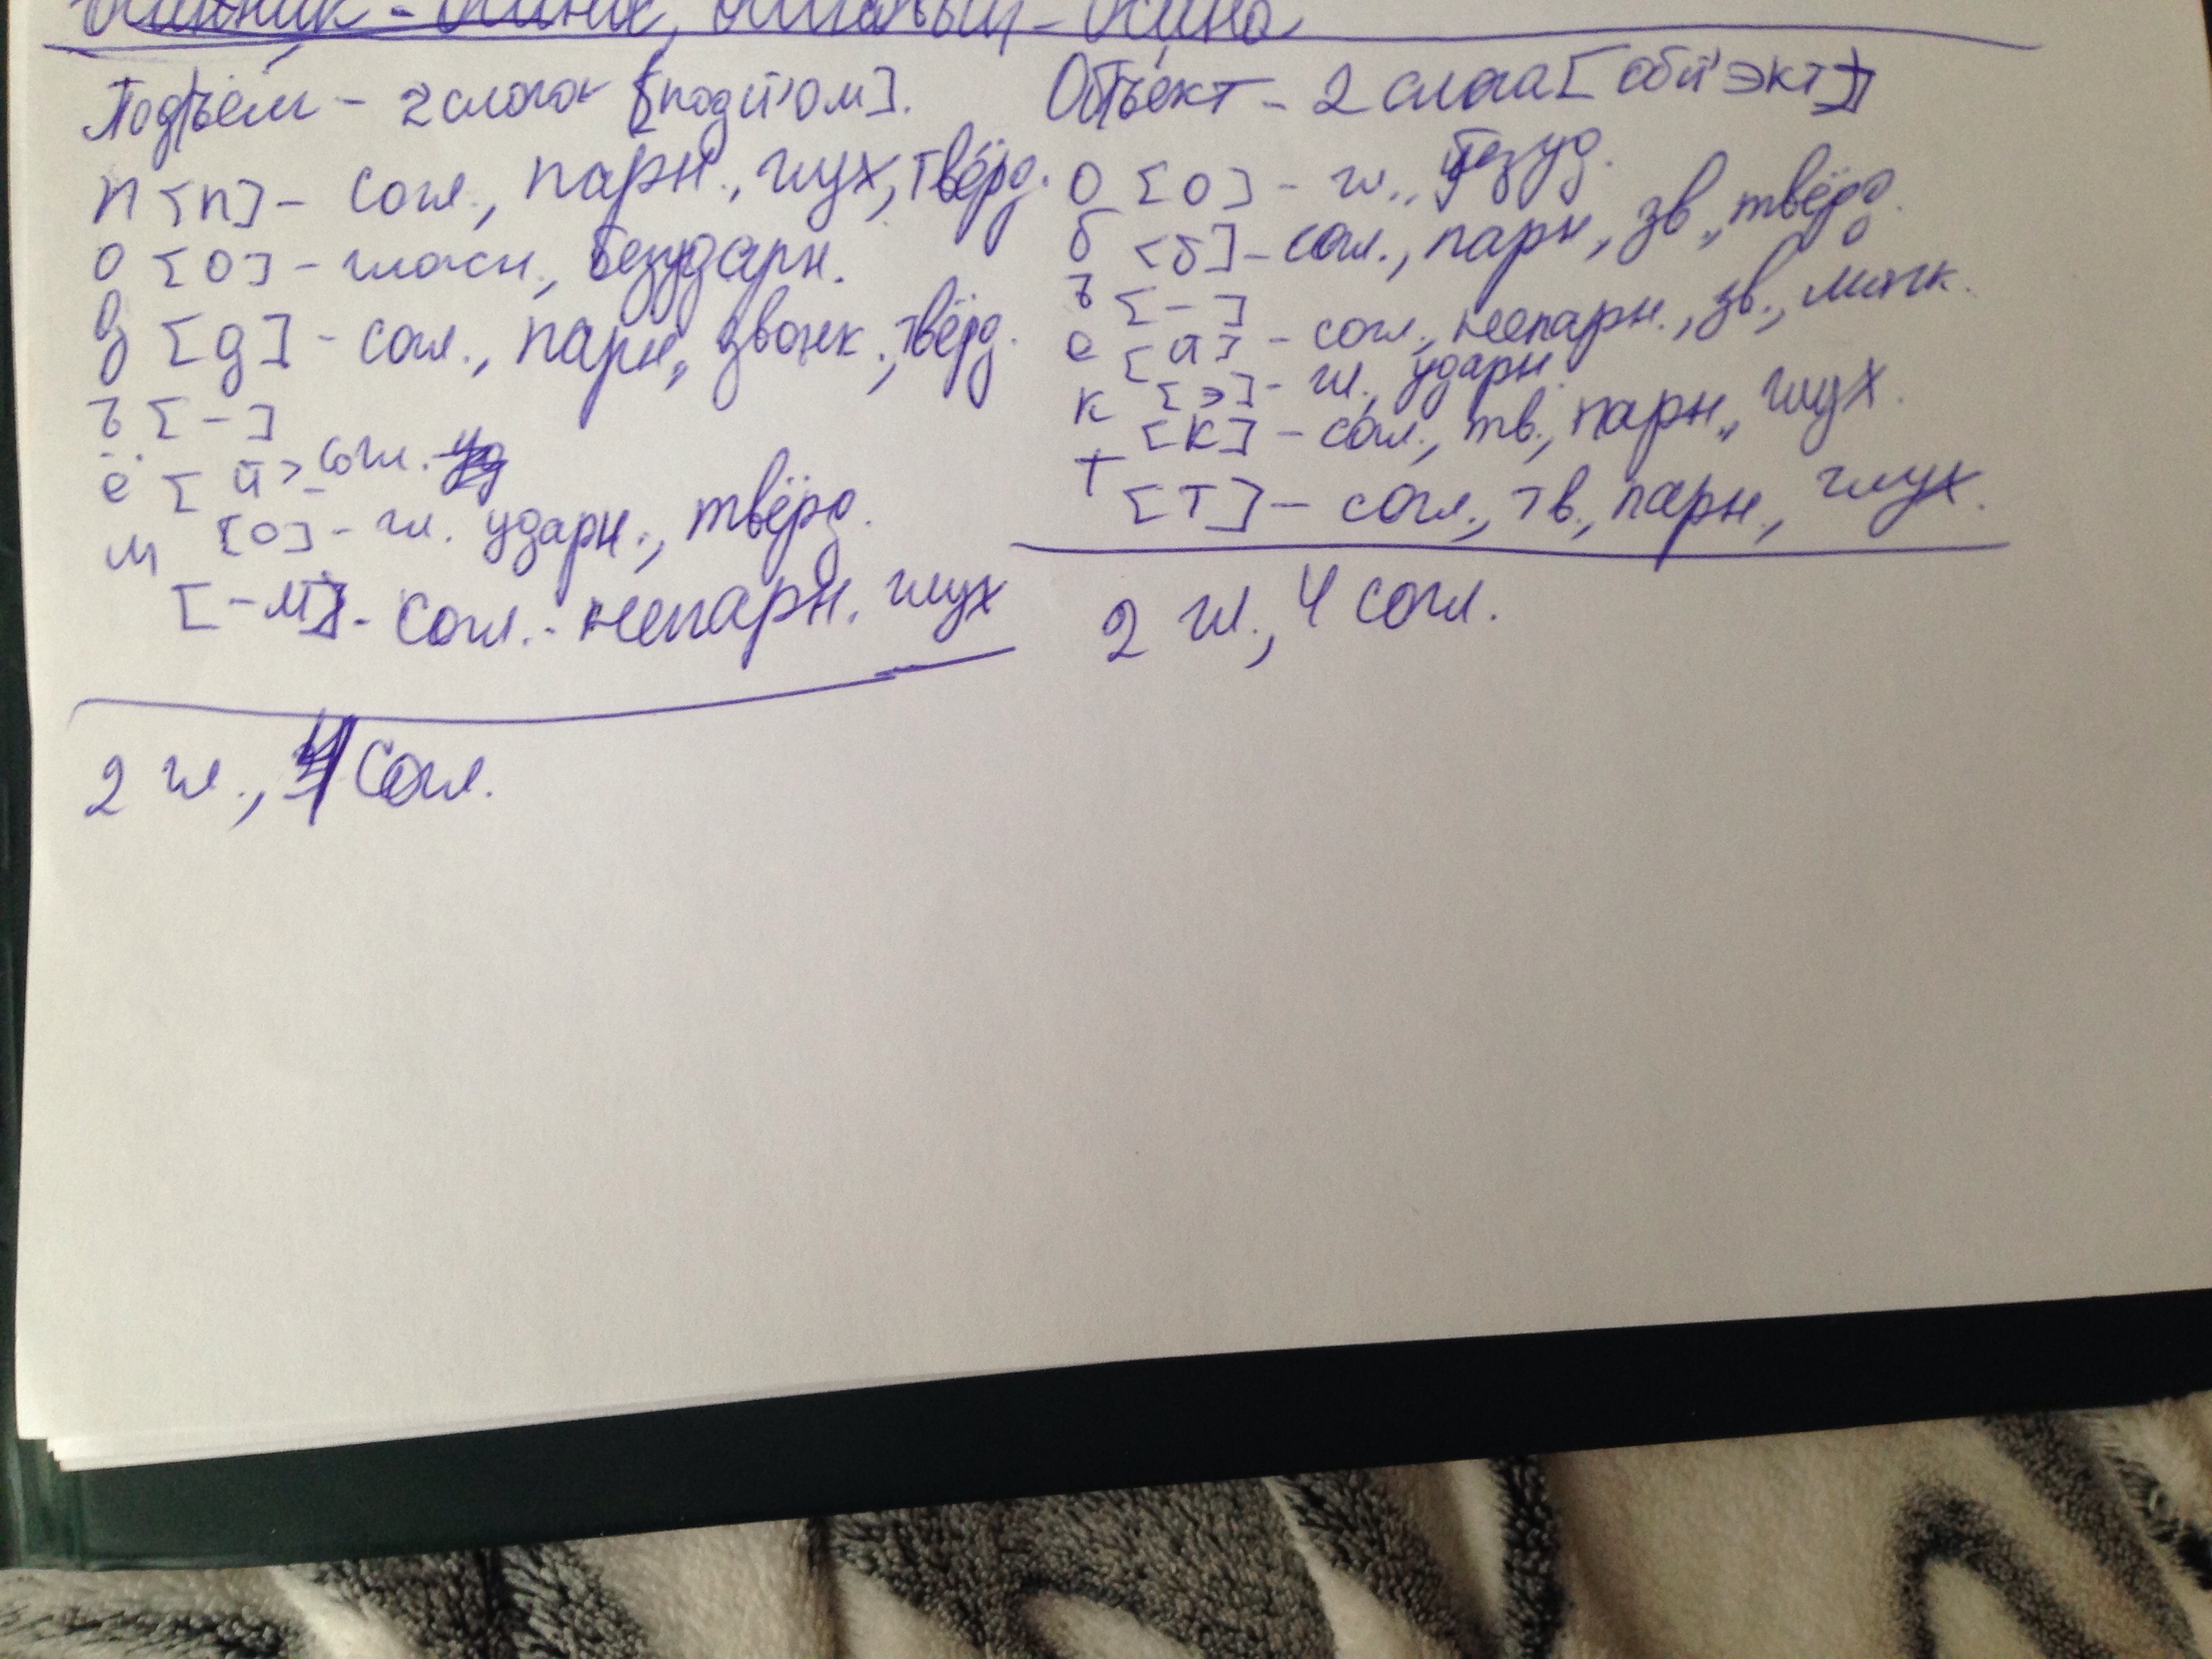 осина
Подъём - 2 слога [подй'ом].
п [п] - согл., парн., глух, твёрд.
о [о] - гласн, безударн.
д [д] - согл., парн., звонк., твёрд.
ъ [-]
ё [й'] - согл.
[о] - гл. ударн., твёрд.
м
[-м] - согл. - непарн. глух
2 гл., 4 согл.
Объект - 2 слога [обй'экт]
о [о] - гл., безуд.
б [б] - согл., парн, зв., твёрд.
ъ [-]
е [й] - согл., непарн., зв., мягк.
[э] - гл, ударн
к [к] - согл., тв., парн., глух.
т [т] - согл., тв., парн., глух.
2 гл., 4 согл.